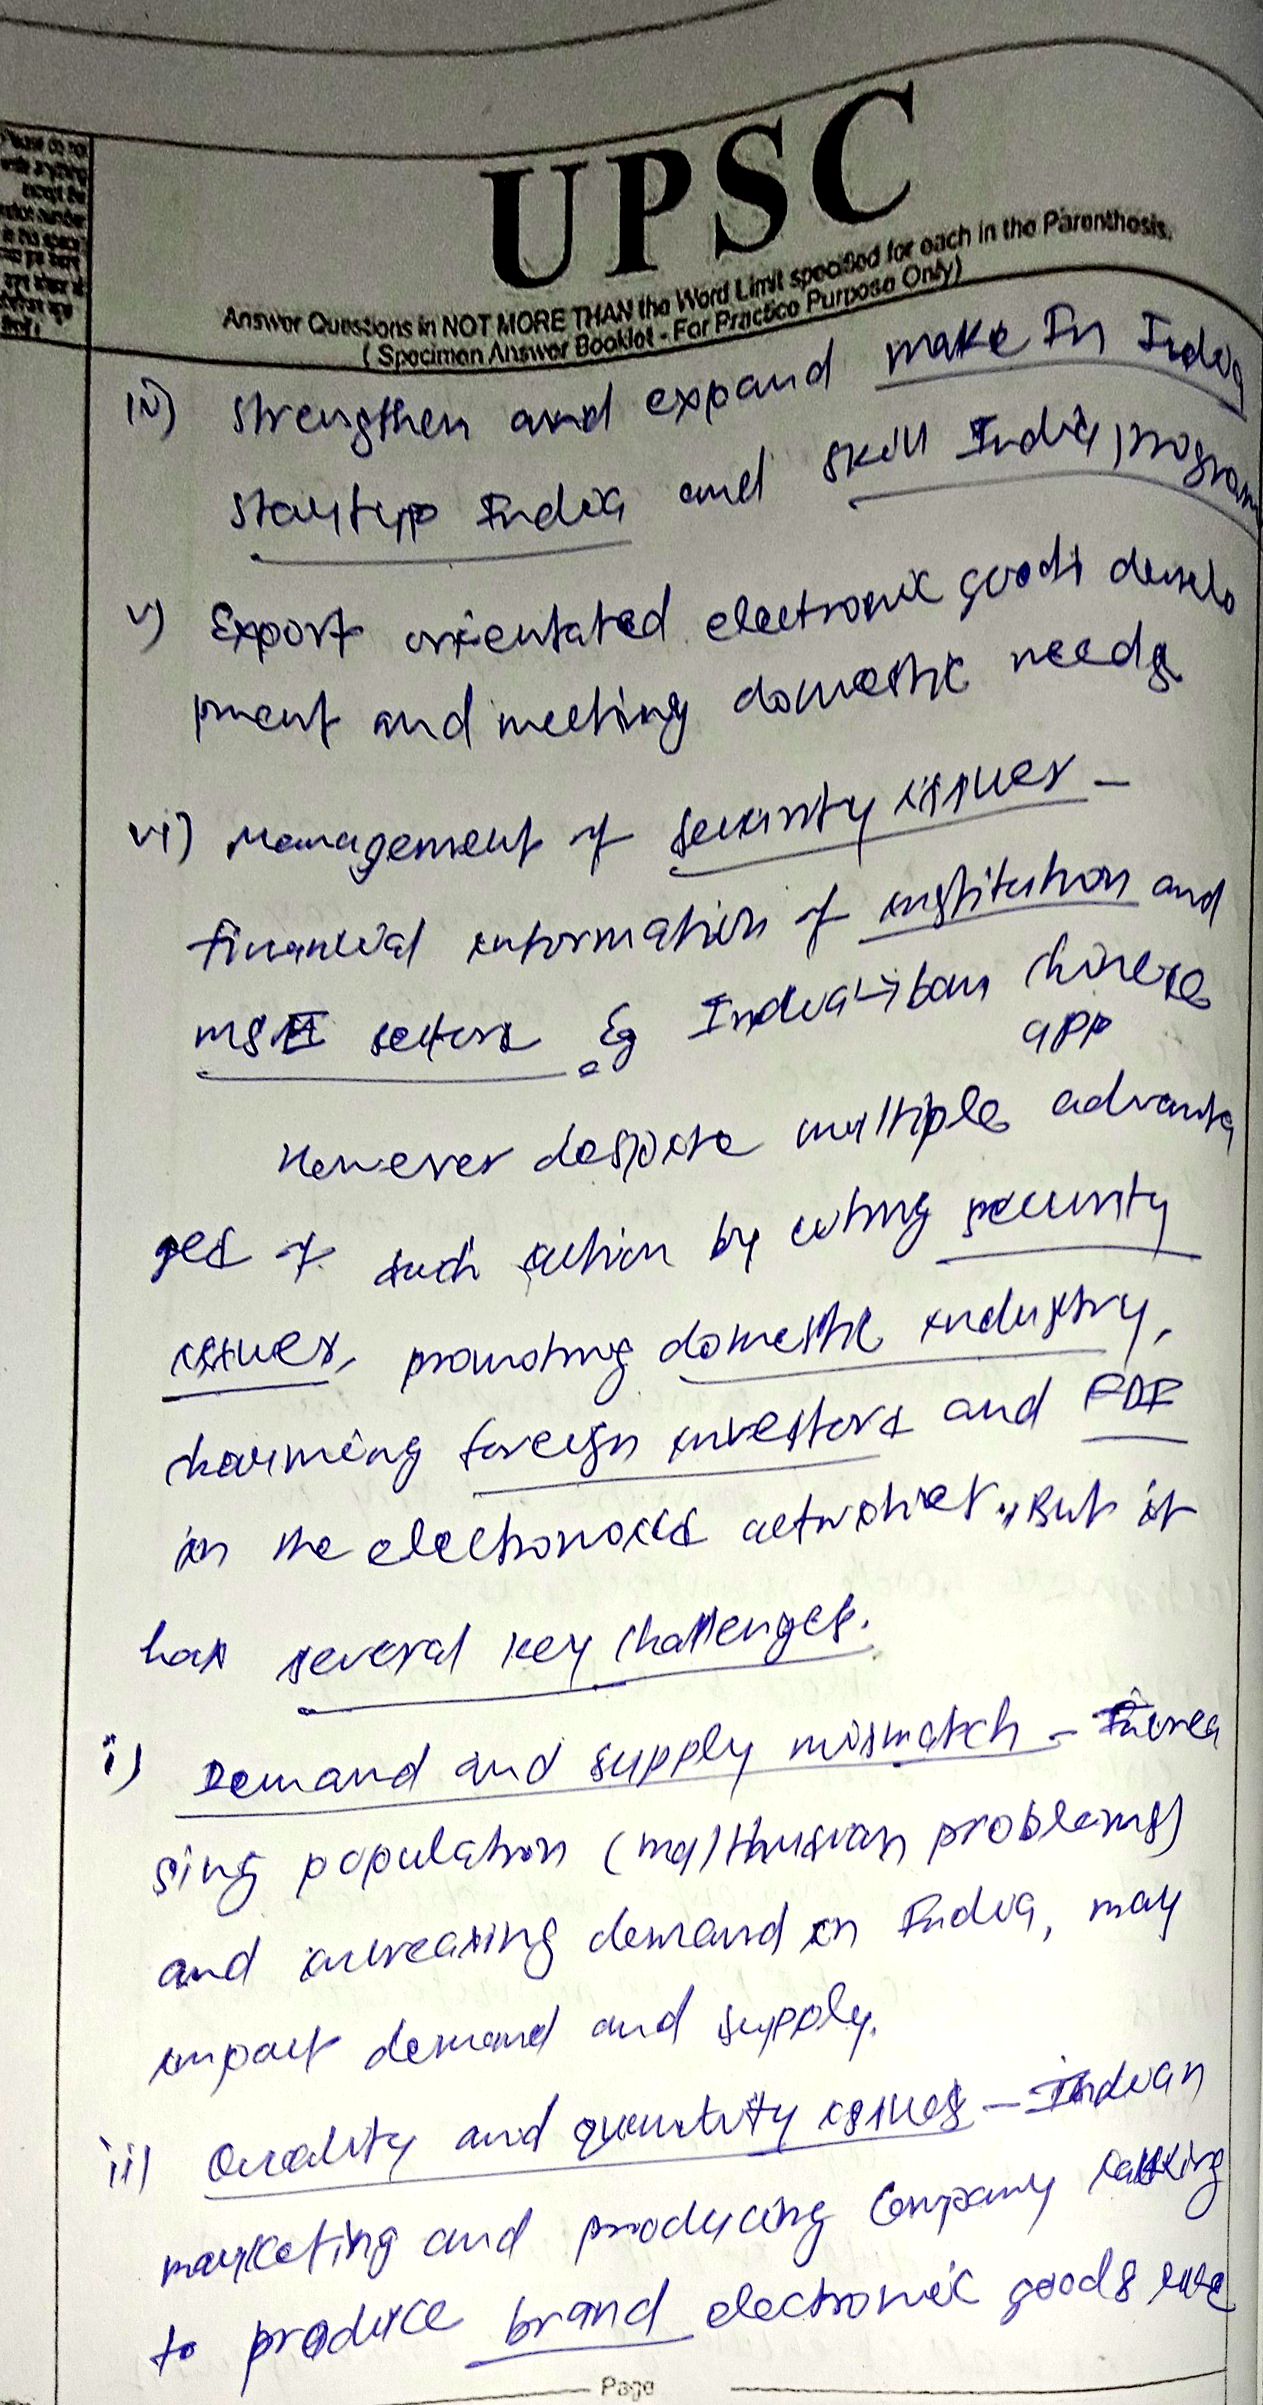 Please do not
write anything
except the
question number
in this space
UPSC
Answer Questions in NOT MORE THAN the Word Limit specified for each in the Parenthesis.
( Specimen Answer Booklet - For Practice Purpose Only)
iv) Strengthen and expand make In India
Startup India and Skill India, program
v) Export orientated electronic goods develo
pment and meeting domestic needs
vi) Management of security issues -
financial information of institution and
msme sectors Eg India → ban chinese
app
However despite multiple advanta
ges of such action by cuting security
issues, promoting domestic industry,
charming foreign investors and FDI
in the electronices activities. But it
has several key challenges.
i) Demand and supply mismatch - Increa
sing population (malthusian problems)
and increasing demand in India, may
impact demand and supply.
ii) Quality and quantity issues - Indian
marketing and producing company lacking
to produce brand electronic goods like
Page